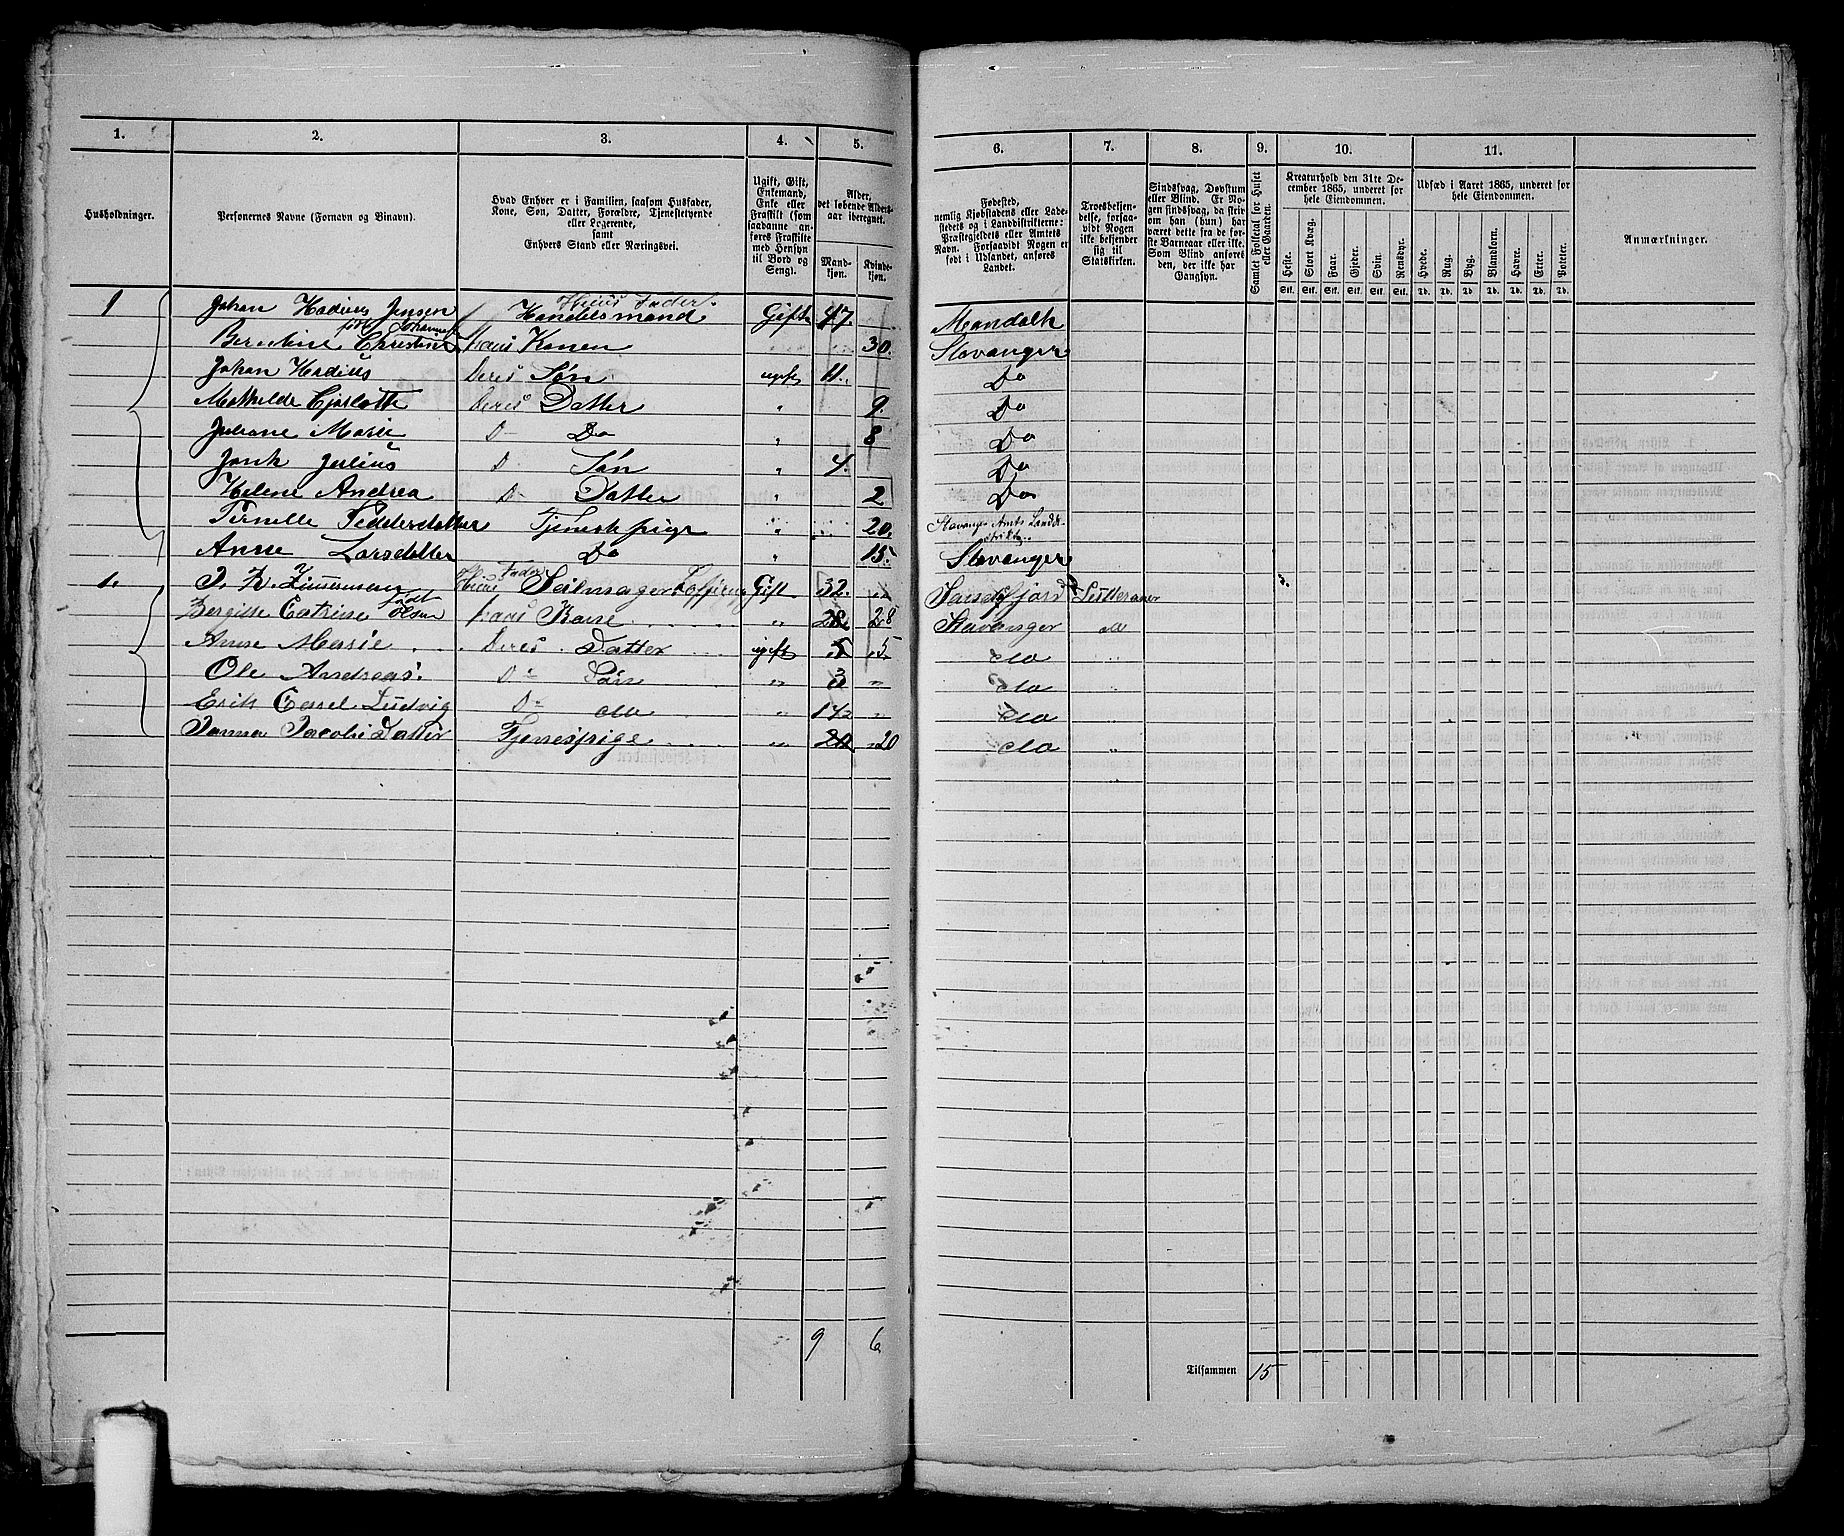 1. 2. 3. 4. 5. 6. 7. 8. 9. 10. 11.
Husholdninger.
Personernes Navne (Fornavn og Binavn).
Hvad Enhver er i Familien, saasom Husfader,
Kone, Søn, Datter, Forældre, Tjenestetyende
eller Logerende,
samt
Enhvers Stand eller Næringsvei.
Ugift, Gift,
Enkemand,
Enke eller
Fraskilt (som
saadanne an-
føres Fraskilte
med Hensyn
til Bord og
Seng).
Alder,
det løbende Alders-
aar iberegnet.
Mand-
kjøn.
Kvinde-
kjøn.
Fødested,
nemlig Kjøbstadens eller Lade-
stedets og i Landdistrikterne:
Præstegjeldets eller Amtets
Navn. Forsaavidt Nogen er
født i Udlandet, anføres
Landet.
Troesbekjen-
delse, forsaa-
vidt Nogen
ikke bekjender
sig til
Statskirken.
Sindssvag, Døvstum
eller Blind. Er No-
gen sindssvag, da skriv
om han (hun) har
været dette fra de før-
ste Barneaar eller ikke.
Som Blind anføres
den, der ikke har
Gangsyn.
Samlet Folketal for Huset
eller Gaarden.
Kreaturhold den 31te De-
cember 1865, underet for
hele Eiendommen.
Heste. Stort Kvæg. Faar. Gjeder. Svin. Rensdyr.
Stk. Stk. Stk. Stk. Stk. Stk.
Udsæd i Aaret 1865, underet for
hele Eiendommen.
Hvede. Rug. Byg. Blandkorn. Havre. Erter. Poteter.
Td. Td. Td. Td. Td. Td. Td.
Anmærkninger.
Huus Fader
1 Johan Jensen Handelsmand Gift 47. Mandalh
født Johannes
Berntine Christine hans Konen 30. Stavanger
Johan deres Søn ugift 11. Do
Mathilde Cjarlotte deres Datter " 9. Do
Juliane Marie D- Do " 8 Do
Jonk Julius D- Søn " 4. Do
Helene Andrea D- Datter " 2 Do
Pernille Pedersdatter Tjenestepige " 20. Stavanger Amts Landdi-
strikt.
Anne Larsdatter Do " 15. Stavanger
1. Huus Fader Seilmager Gift 32. Sandefjord Lutteraner
Bergitte Catrine født Olsen hans Kone " 28 28 Stavanger do
Anne Marie deres Datter ugift 5 5 do "
Ole Andreas D- Søn " 3 " do
Erik Carel Ludvig D- do " 1½ " do
Janna Jacobs Datter Tjenestpige " 20 20 do "
9 6
Tilsammen 15